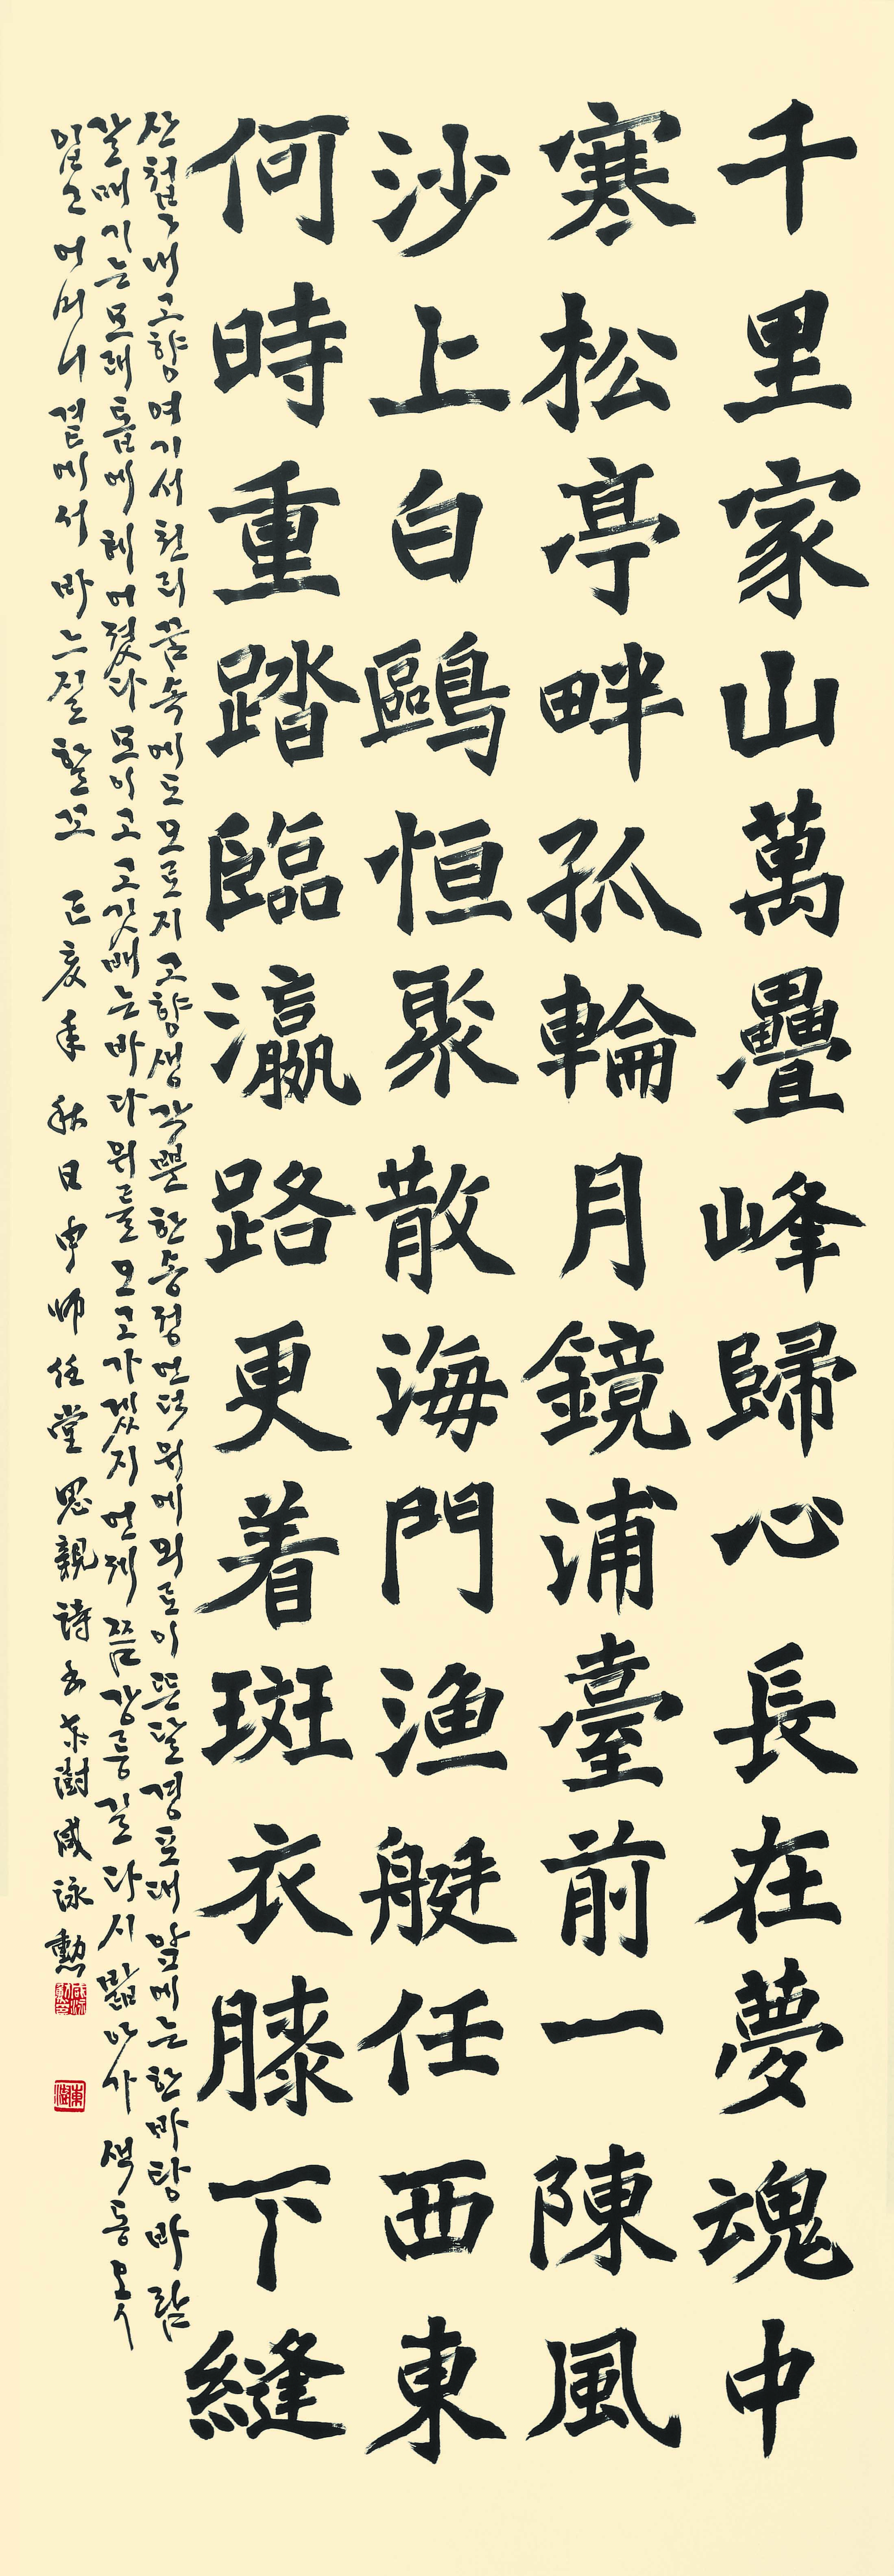 千里家山萬疊峰歸心長在夢魂中
寒松亭畔孤輪月鏡浦臺前一陳風
沙上白鷗恒聚散海門漁艇任西東
何時重踏臨瀛路更着斑衣膝下縫
산첩첩 내 고향 여기서 천리 꿈속에도 오로지 고향생각뿐 한송정 언덕 위에 외로이 뜬 달 경포대 앞에는 한바탕 바람
갈매기는 모래톱에 헤어졌다 모이고 고깃배는 바다 위를 오고가겠지 언제쯤 강릉길 다시 밟아가 색동옷
입고 어머니 곁에서 바느질 할꼬 丁亥年 秋日 申師任堂 思親詩